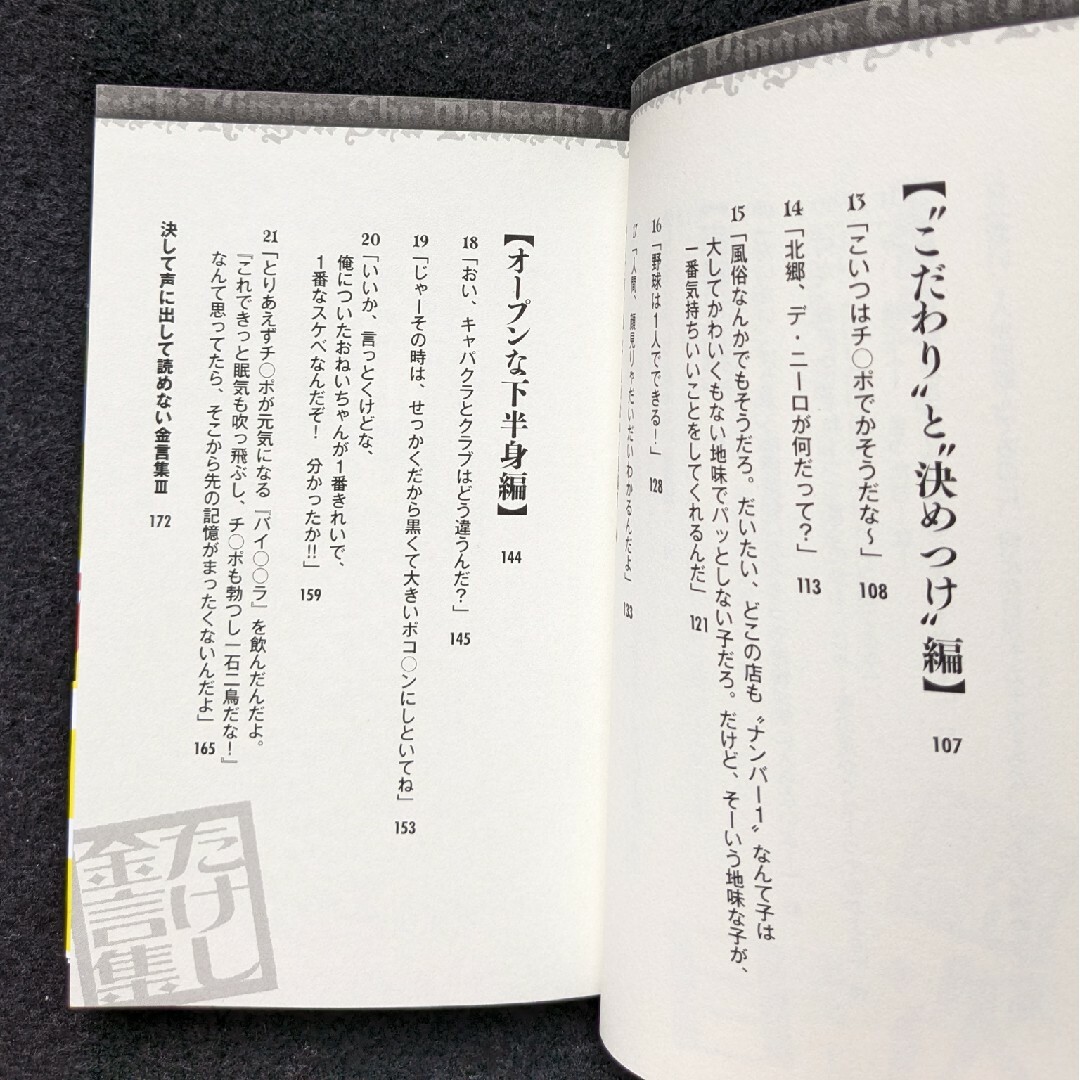 【〝こだわり〟と〝決めつけ〟編】 107
13「こいつはチ〇ポでかそうだな〜」 108
14「北郷、デ・ニーロが何だって?」 113
15「風俗なんかでもそうだろ。だいたい、どこの店も〝ナンバー1〟なんて子は
大してかわいくもない地味でパッとしない子だろ。だけど、そーいう地味な子が、
一番気持ちいいことをしてくれるんだ」 121
16「野球は1人でできる!」 128
「人間、顔見りゃだいたいわかるんだよ」 133
【オープンな下半身編】 144
18「おい、キャバクラとクラブはどう違うんだ?」 145
19「じゃーその時は、せっかくだから黒くて大きいポコ〇ンにしといてね」 153
20「いいか、言っとくけどな、
俺についたおねいちゃんが1番きれいで、
1番なスケベなんだぞ! 分かったか!!」 159
21「とりあえずチ〇ポが元気になる『バイ〇〇ラ』を飲んだんだよ。
『これできっと眠気も吹っ飛ぶし、チ〇ポも勃つし一石二鳥だな!』
なんて思ってたら、そこから先の記憶がまったくないんだよ」 165
決して声に出して読めない金言集Ⅲ 172
たけし
金言集